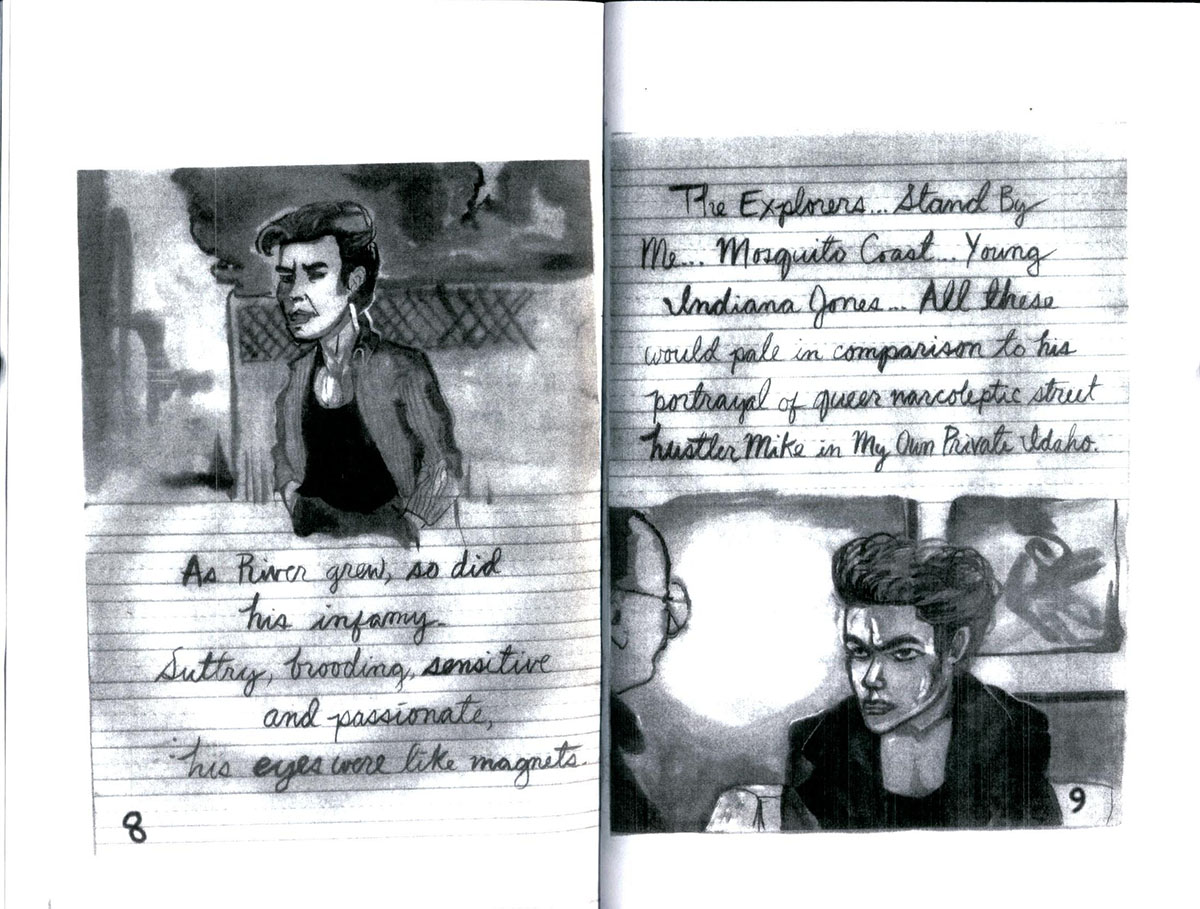 As River grew, so did
his infamy.
Suttry, brooding, sensitive
and passionate,
his eyes were like magnets.
8
The Explorers... Stand By
Me... Mosquito Coast... Young
Indiana Jones... All these
would pale in comparison to his
portrayal of queer narcoleptic street
hustler Mike in My Own Private Idaho.
9